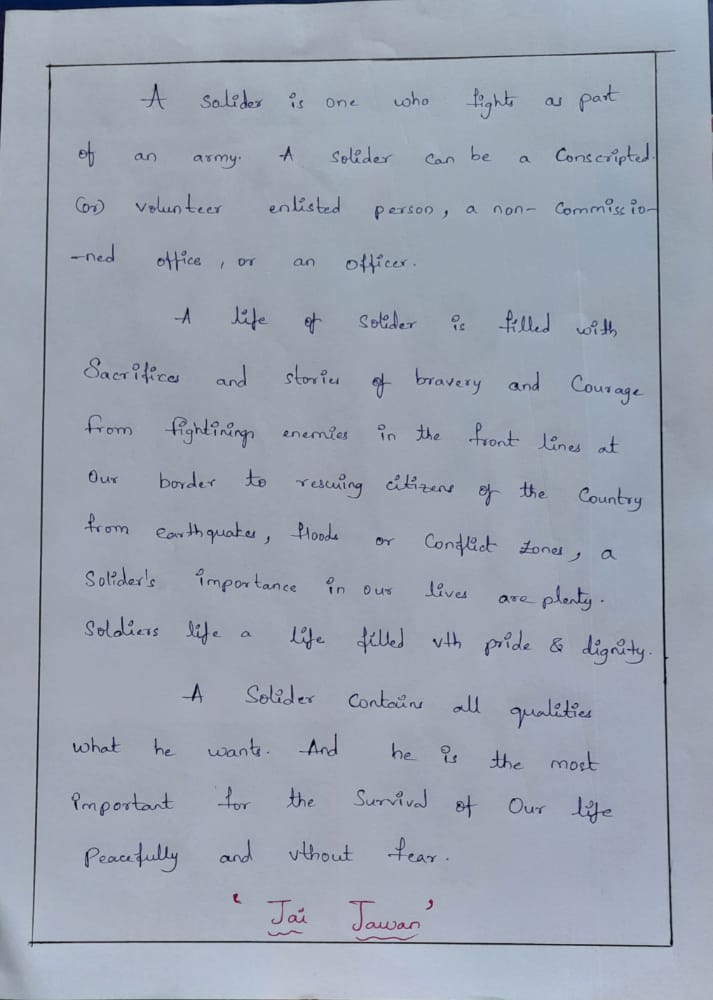 A solider is one who fights as part
of an army. A solider can be a Conscripted.
(or) volunteer enlisted person, a non- Commissio-
-ned office, or an officer.
A life of solider is filled with
Sacrifices and stories of bravery and Courage
from fightining enemies in the front lines at
Our border to rescuing citizens of the Country
from earthquakes, floods or Conflict zones, a
Solider's importance in our lives are plenty.
Soldiers life a life filled vth pride & dignity.
A Solider Contains all qualities
what he wants. And he is the most
important for the Survival of Our life
Peacefully and vthout fear.
' Jai Jawan'